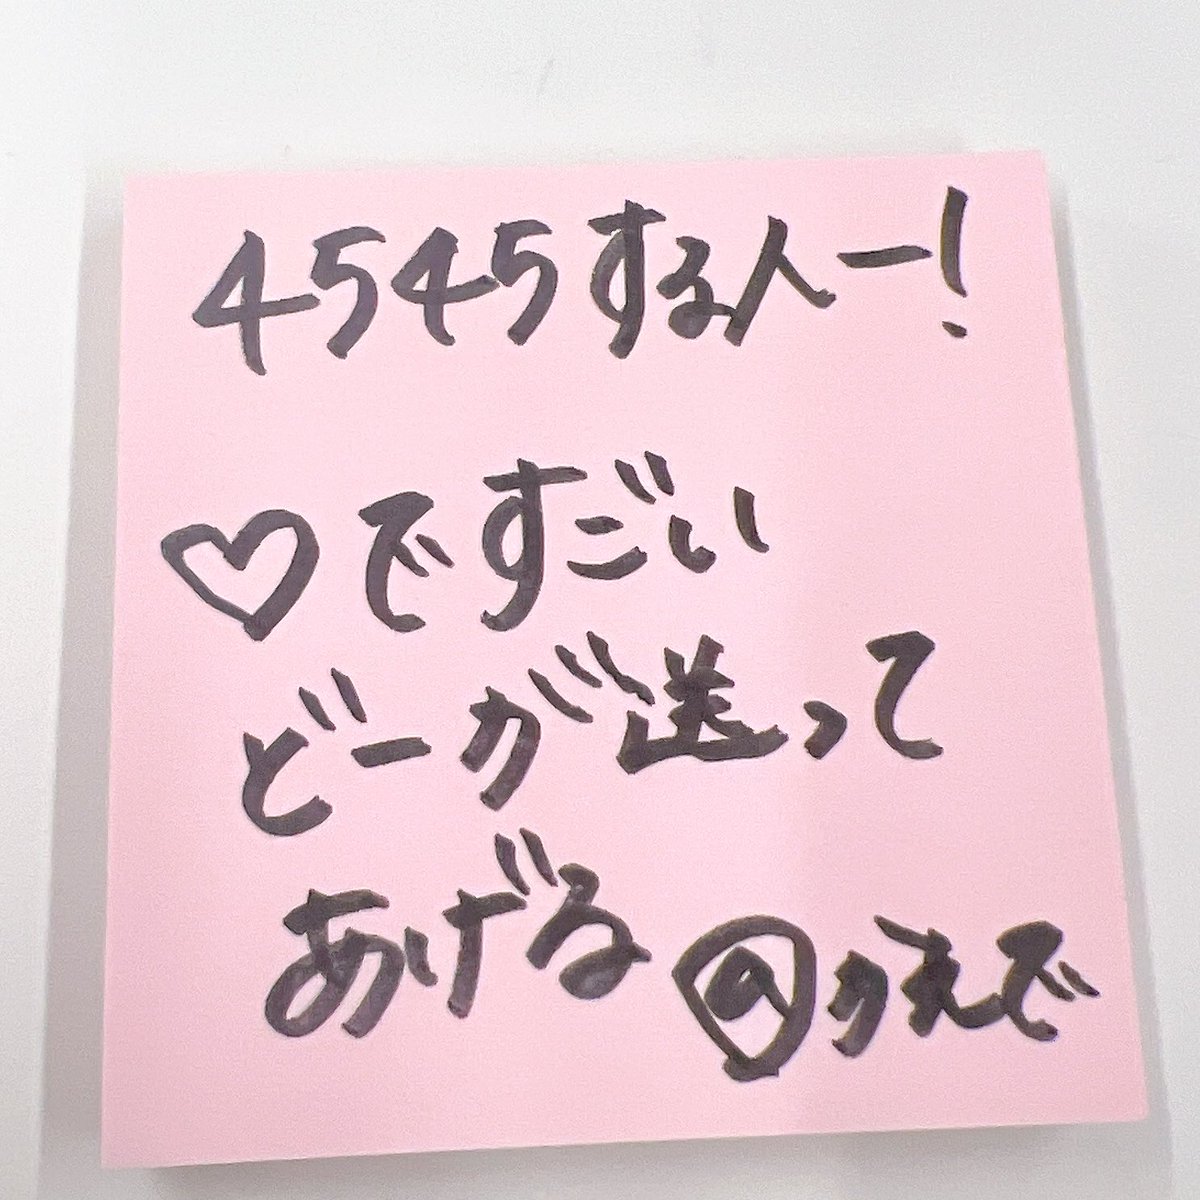 4545する人ー!
♡ですごい
どーが送って
あげる のりえで